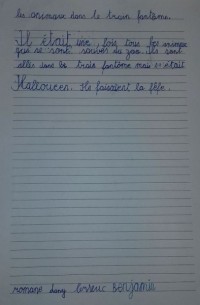 les animaux dans le train fantôme.
Il était une fois tous les animaux
que se sont sauvés du zoo. Ils sont
allés dans le train fantôme mais c'était
Halloween. Ils faisaient la fête.
romane dany Benjamin